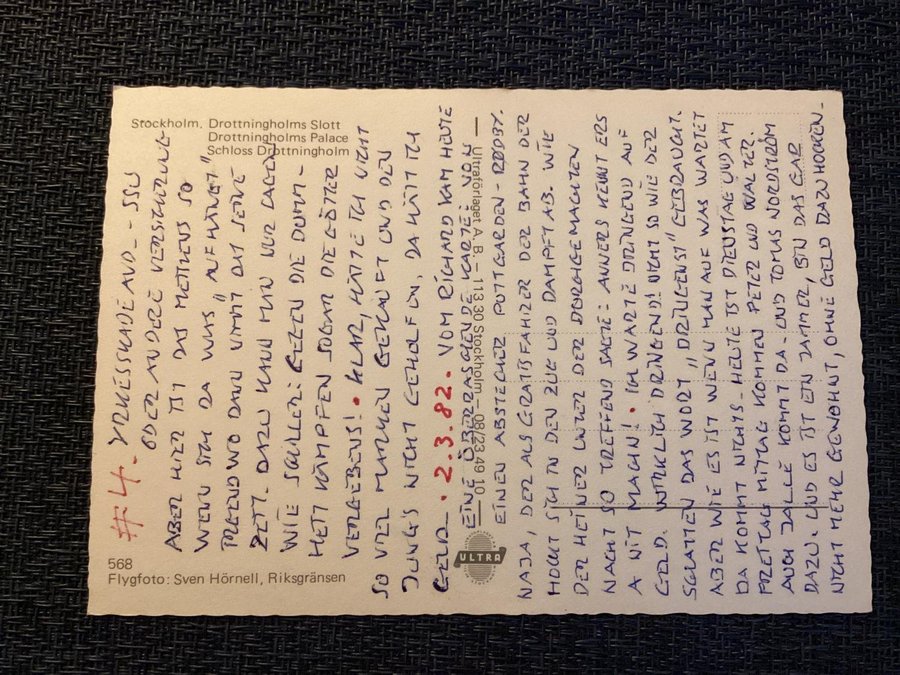 Stockholm, Drottningholms Slott
Drottningholms Palace
Schloss Drottningholm
568
Flygfoto: Sven Hörnell, Riksgränsen
Ultraförlaget A. B. – 113 30 Stockholm – 08/23 49 10
ULTRA
#4.
ODER ANDERE
ABER HIER IST DAS MEISTENS SO
WENN SICH DA WAS "AUFHÄNGT"
IRGENDWO DANN NIMMT DAT SEINE
ZEIT. DAZU KANN MAN NUR SAGEN
WIE SCHILLER: GEGEN DIE DUMM-
HEIT KÄMPFEN SOGAR DIE GÖTTER
VERGEBENS! • KLAR, HÄTTE ICH NICHT
SO VIEL MARKEN GEKAUFT UND DEN
JUNGS NICHT GEHOLFEN, DA HÄTT ICH
GELD. • 2.3.82. VOM RICHARD KAM HEUTE
EINE ÜBERRASCHENDE KARTE: VON
EINEN ABSTECHER PUTTGARDEN - RØDBY.
NAJA, DER ALS GRATISFAHRER DER BAHN DER
HOCKT SICH IN DEN ZUG UND DAMPFT AB. WIE
DER HEINER UNTER DER DURCHGEMACHTEN
NACHT SO TREFFEND SAGTE: ANNERS KENNT ERS
A NIT MACHN! • ICH WARTE DRINGEND AUF
GELD. WIRKLICH DRINGEND! NICHT SO WIE DER
DAS WORT "DRINGENST" GEBRAUCHT.
ABER WIE ES IST WENN MAN AUF WAS WARTET
DA KOMMT NICHTS. HEUTE IST DIENSTAG UND AM
FREITAG MITTAG KOMMEN PETER UND WALTER.
AUCH JALLE KOMMT DA. UND TOMAS NORDSTRÖM
DAZU. UND ES IST EIN JAMMER, BIN DAS GAR
NICHT MEHR GEWOHNT, OHNE GELD DAZUHOCKEN.